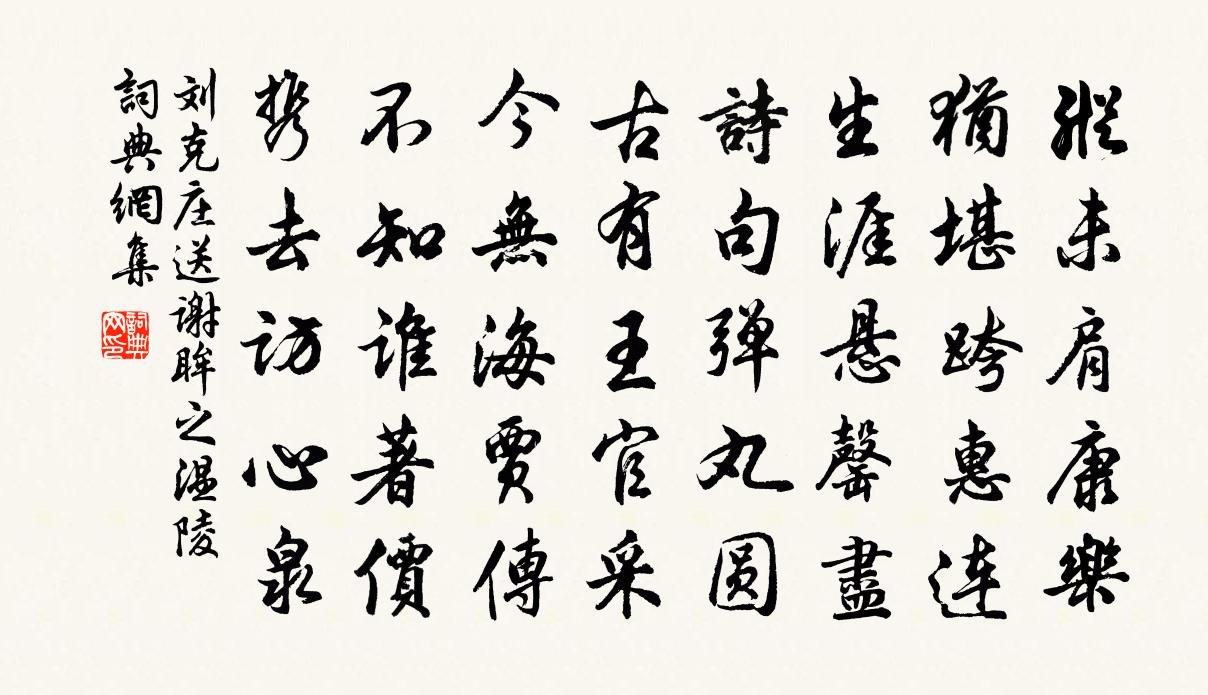 縱未肩康樂
猶堪跨惠連
生涯悬罄盡
詩句弹丸圆
古有王官采
今無海賈傳
不知誰著價
携去訪心泉
刘克庄送谢眸之温陵
詞典網集
詞典网印